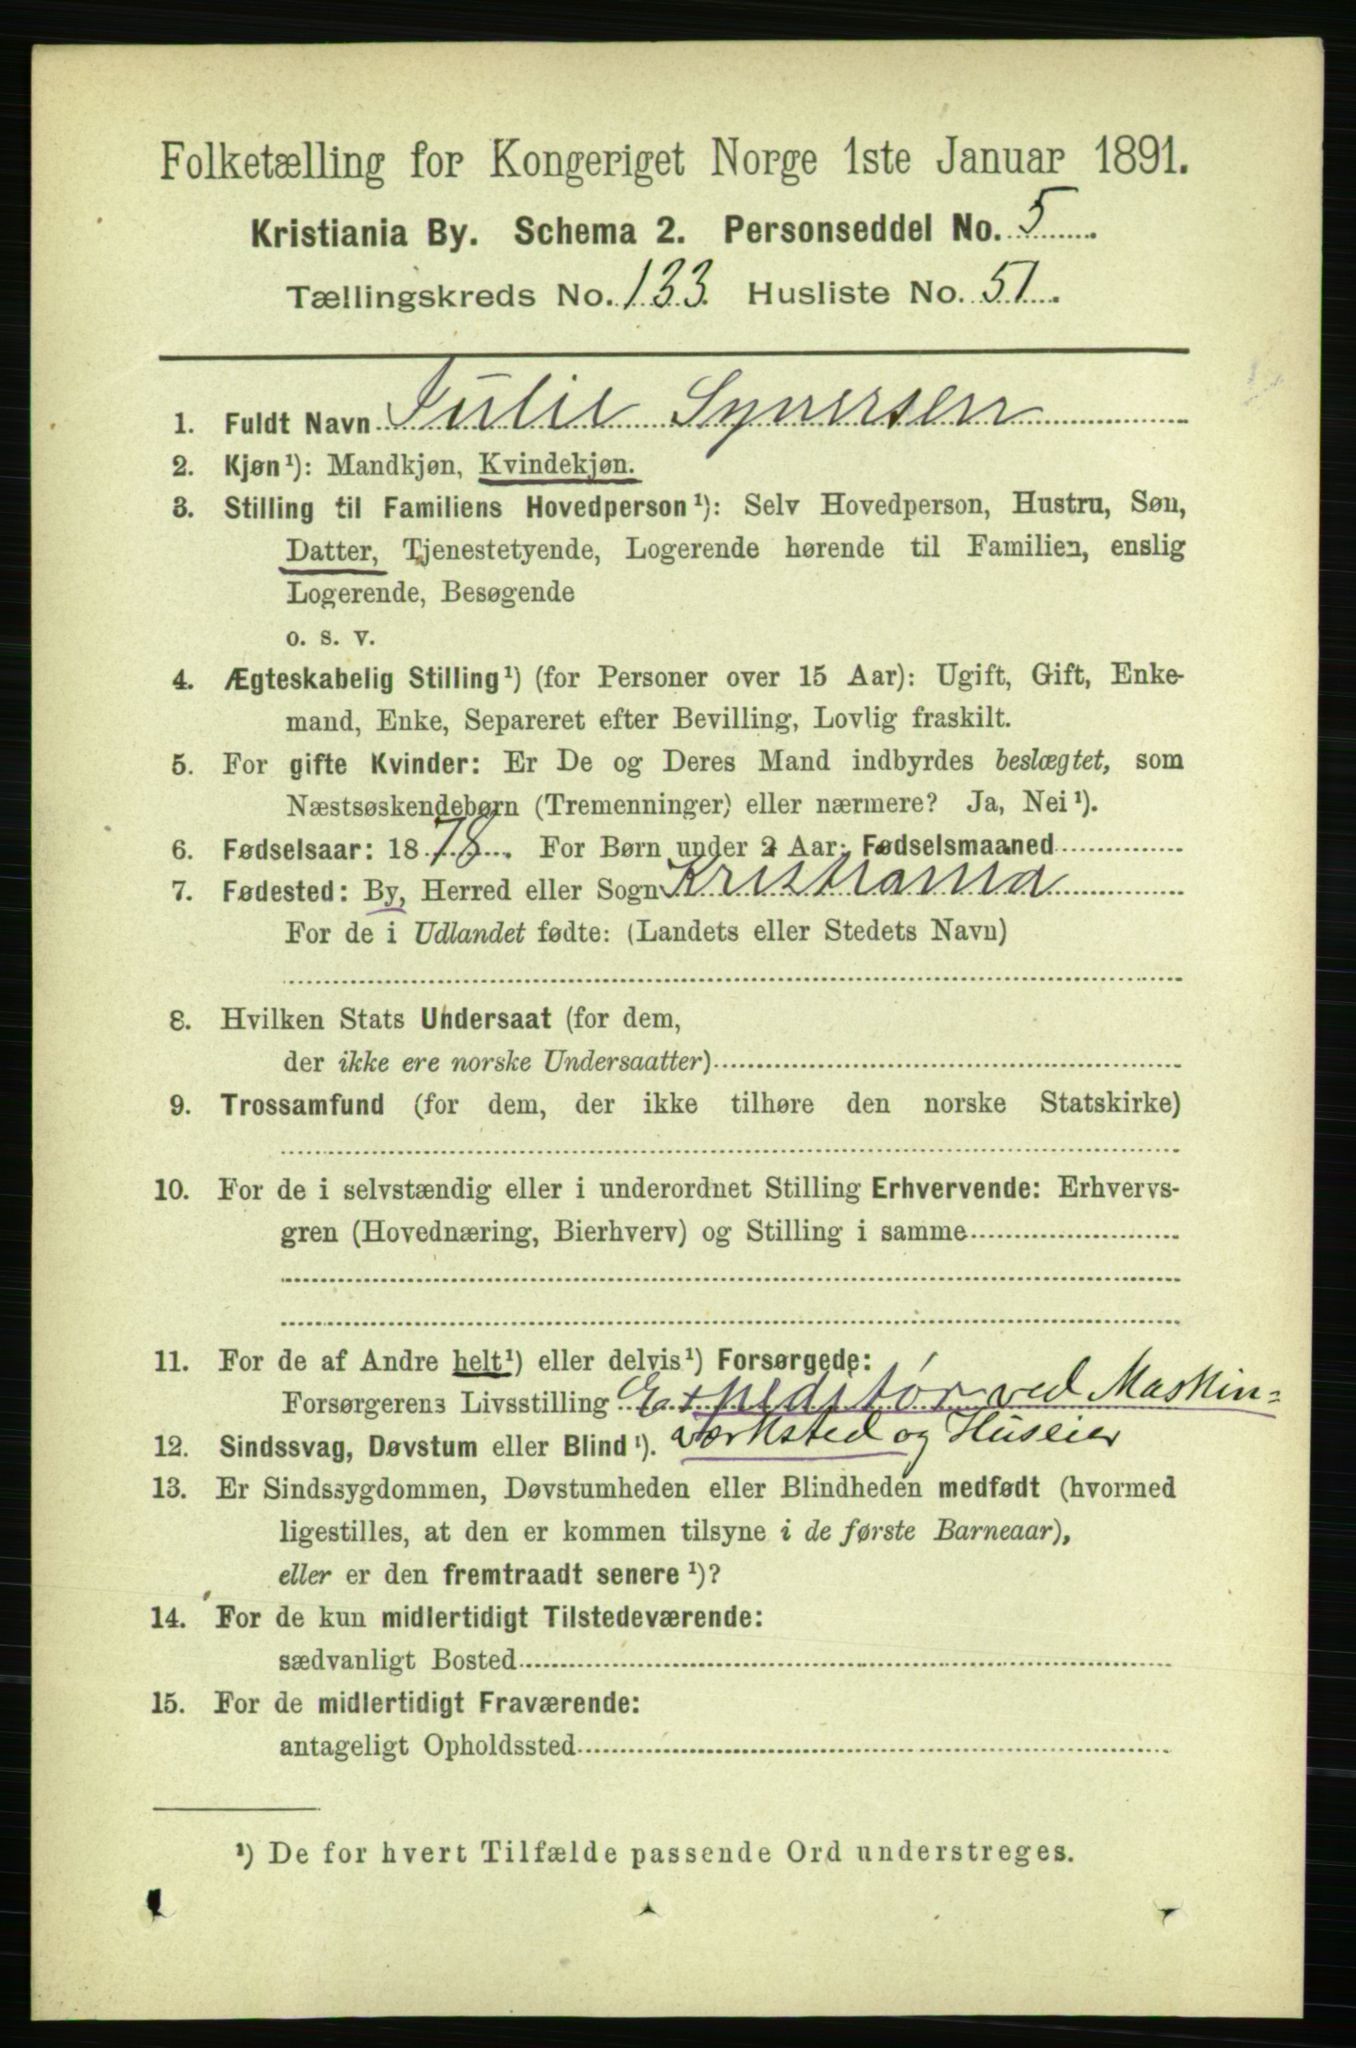 Folketælling for Kongeriget Norge 1ste Januar 1891.
Kristiania By. Schema 2. Personseddel No. 5
Tællingskreds No. 133. Husliste No. 51.
1. Fuldt Navn Julie Syversen
2. Kjøn¹): Mandkjøn, Kvindekjøn.
3. Stilling til Familiens Hovedperson¹): Selv Hovedperson, Hustru, Søn,
Datter, Tjenestetyende, Logerende hørende til Familien, enslig
Logerende, Besøgende
o. s. v.
4. Ægteskabelig Stilling¹) (for Personer over 15 Aar): Ugift, Gift, Enke-
mand, Enke, Separeret efter Bevilling, Lovlig fraskilt.
5. For gifte Kvinder: Er De og Deres Mand indbyrdes beslægtet, som
Næstsøskendebørn (Tremenninger) eller nærmere? Ja, Nei¹).
6. Fødselsaar: 1878. For Børn under 2 Aar: Fødselsmaaned
7. Fødested: By, Herred eller Sogn Kristiania
For de i Udlandet fødte: (Landets eller Stedets Navn)
8. Hvilken Stats Undersaat (for dem,
der ikke ere norske Undersaatter)
9. Trossamfund (for dem, der ikke tilhøre den norske Statskirke)
10. For de i selvstændig eller i underordnet Stilling Erhvervende: Erhvervs-
gren (Hovednæring, Bierhverv) og Stilling i samme
11. For de af Andre helt¹) eller delvis¹) Forsørgede:
Forsørgerens Livsstilling Expeditør ved Maskin-
værksted og Huseier
12. Sindssvag, Døvstum eller Blind¹).
13. Er Sindssygdommen, Døvstumheden eller Blindheden medfødt (hvormed
ligestilles, at den er kommen tilsyne i de første Barneaar),
eller er den fremtraadt senere¹)?
14. For de kun midlertidigt Tilstedeværende:
sædvanligt Bosted
15. For de midlertidigt Fraværende:
antageligt Opholdssted
¹) De for hvert Tilfælde passende Ord understreges.